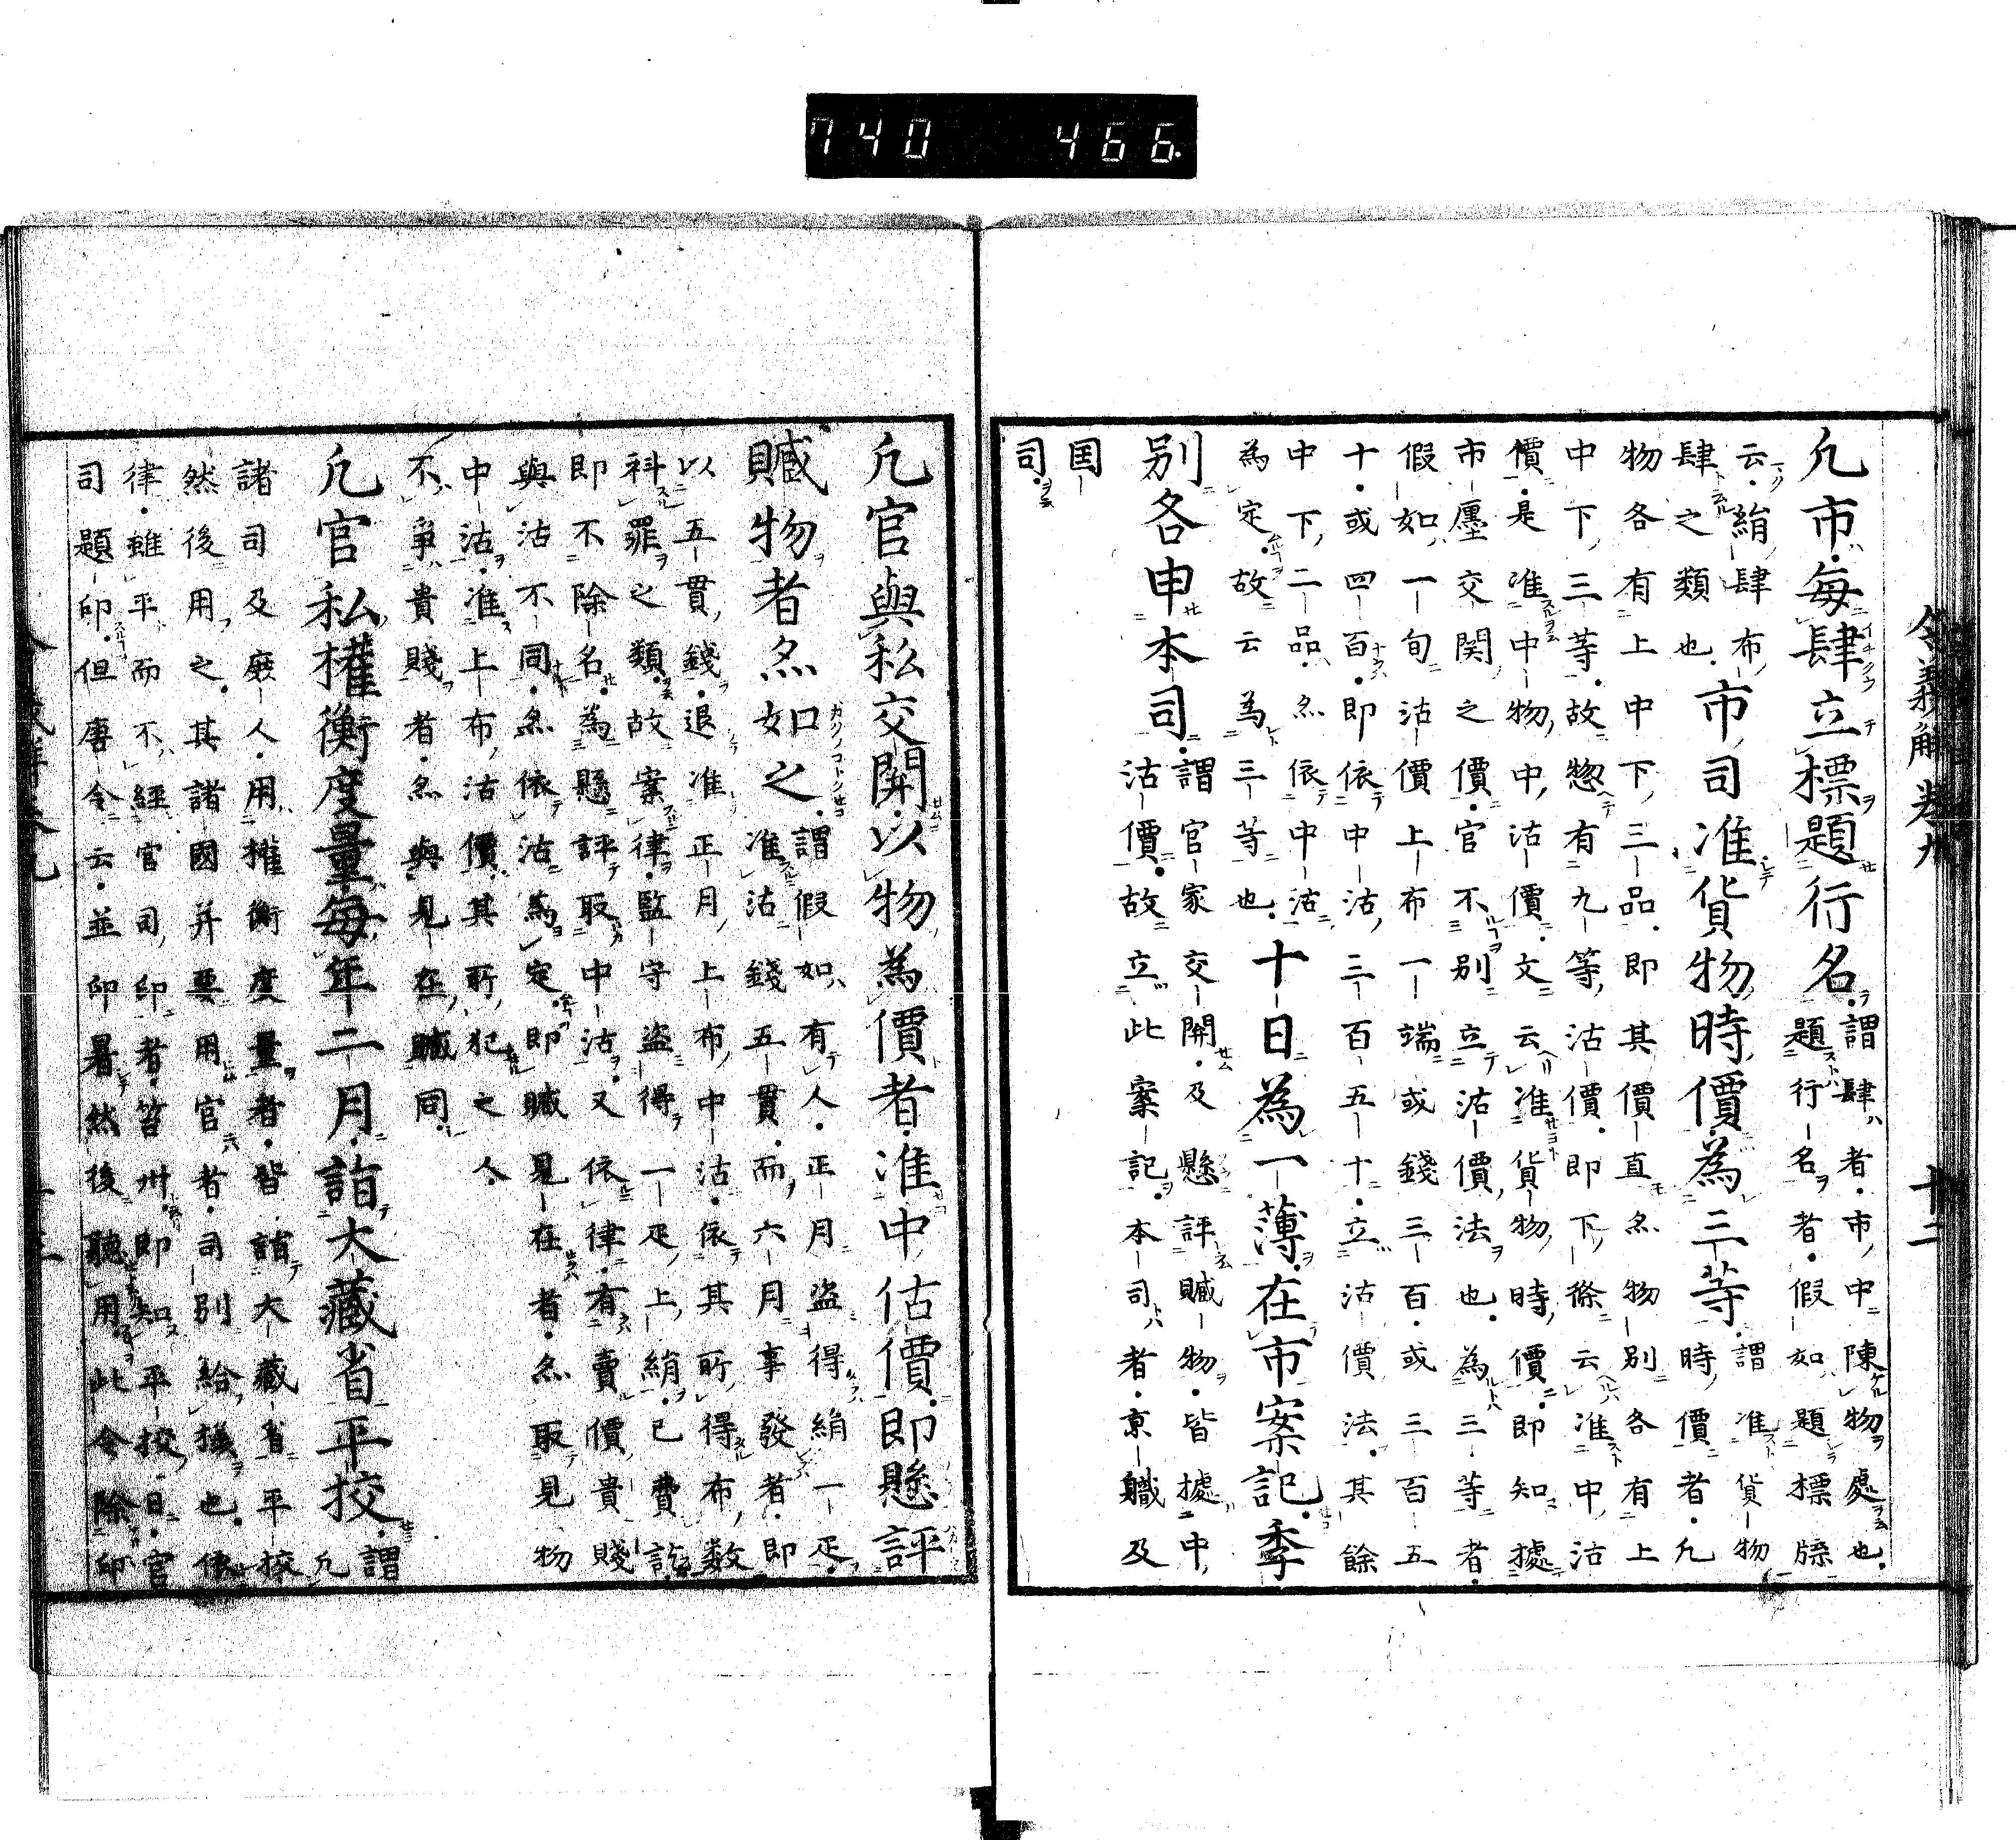 令義解卷九　十二
凢市毎肆立標題行名
謂肆者市中陳物處也
題行名者假如題標牓
云絹肆布
肆之類也
市司准貨物時價為三等
謂准貨物
時價者凢
物各有上中下三品即其價直亦物別各有上
中下三等故惣有九等沽價即下條云准中沽
價是准中物中沽價文云准貨物時價即知據
市廛交関之價官不別立沽價法也為三等者
假如一旬沽價上布一端或錢三百或三百五
十或四百即依中沽三百五十立沽價法其餘
中下二品亦依中沽
為定故云為三等也
十日為一薄在市案記季
別各申本司
謂官家交関及懸評贓物皆據中
沽價故立此案記本司者京職及
国
司
凢官與私交関以物為價者准中估價即懸評
贓物者亦如之
謂假如有人正月盗得絹一疋
准沽錢五貫而六月事發者即
以五貫錢退准正月上布中沽依其所得布数
科罪之類故案律監守盗得一疋上絹已費訖
即不除名為懸評取中沽又依律有賣價貴賤
與沽不同亦依沽為定即贓見在者亦取見物
中沽准上布沽價其所犯之人
不爭貴賤者亦與見在贓同
凢官私權衡度量毎年二月詣大藏省平挍
謂
凢
諸司及廛人用權衡度量者皆詣大藏省平挍
然後用之其諸國并要用官者司別給様也依
律雖平而不經官司印者笞卌即知平挍日官
司題印但唐令云並印署然後聽用此令除印
740 466